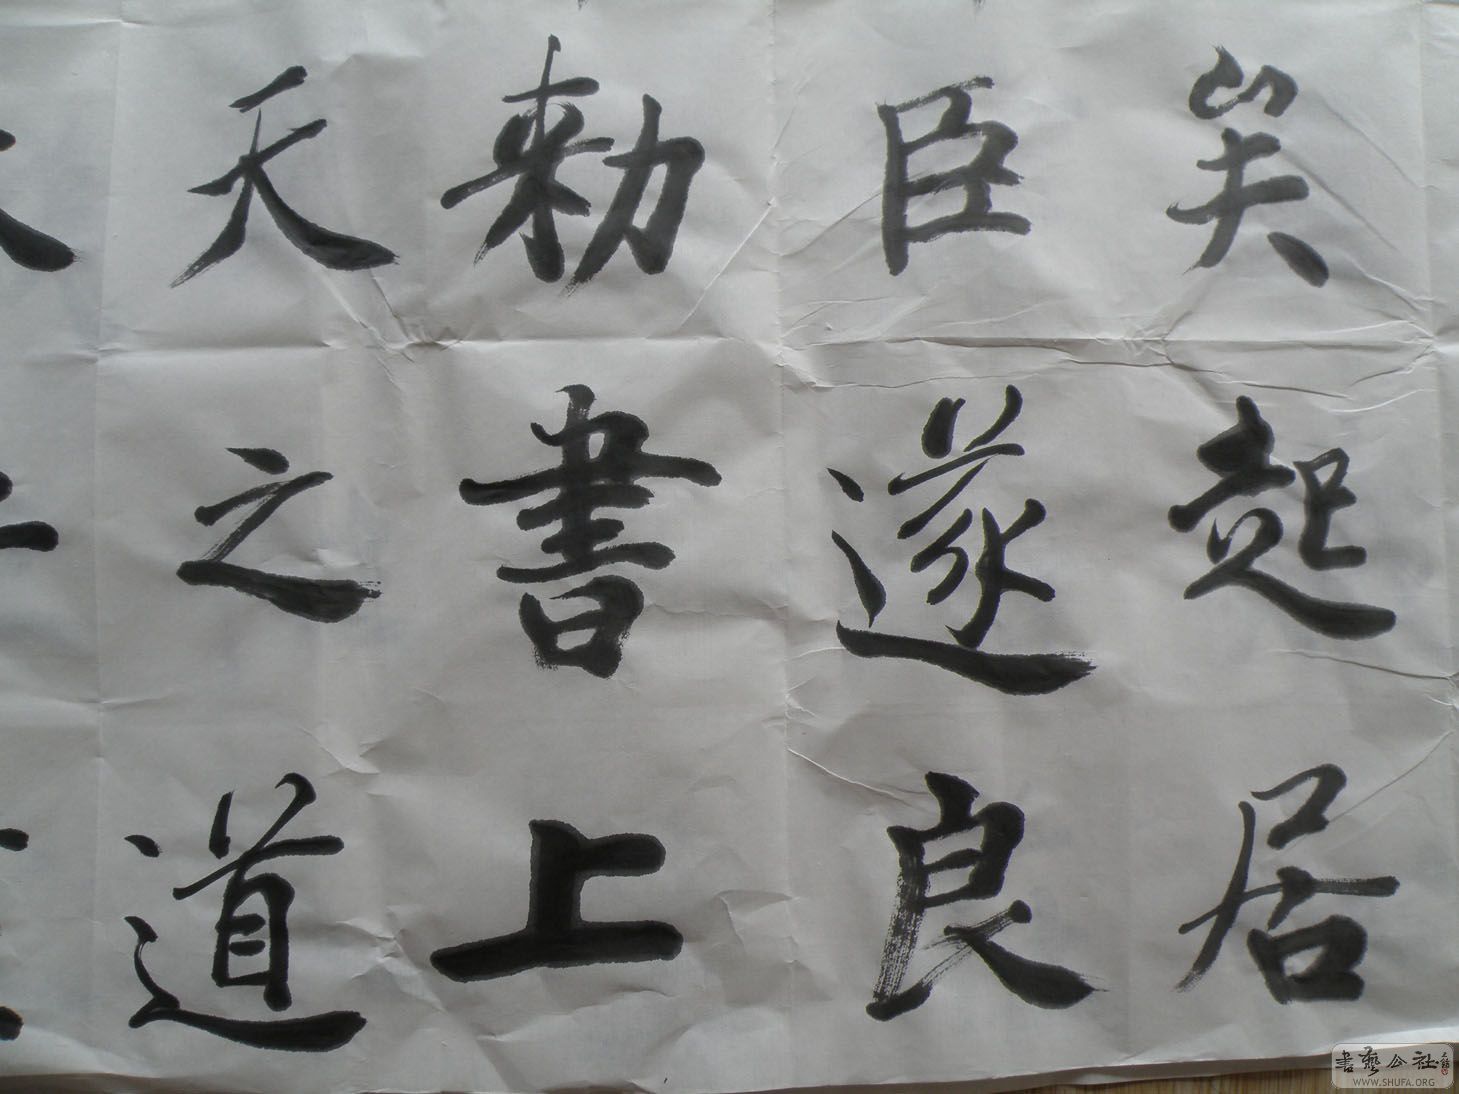 矣起居
臣遂良
勑書上
天之道
書藝公社
WWW.SHUFA.ORG